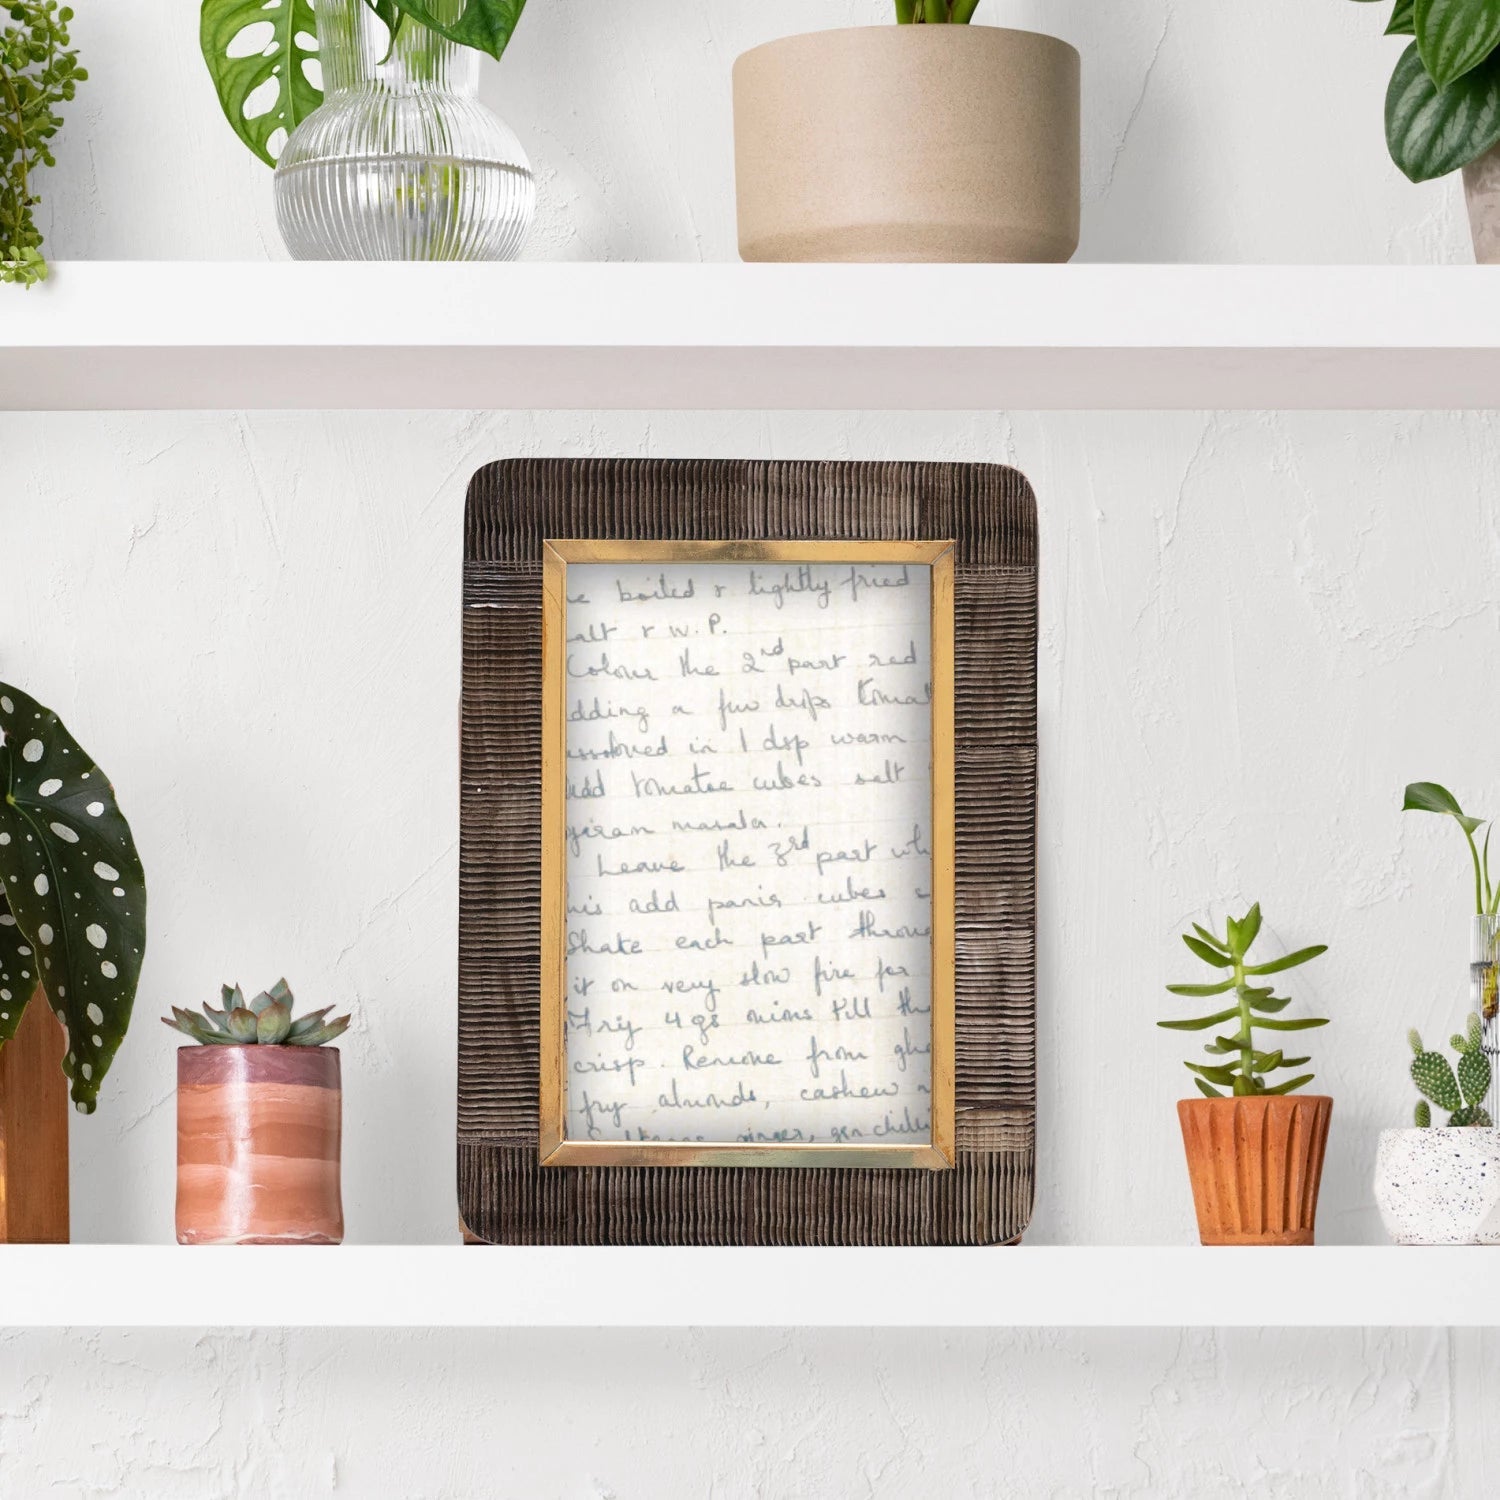 e boiled & lightly fried
alt & W.P.
Colour the 2nd part red
dding a few drops tomat
ssolved in 1 dsp warm
Add tomatoe cubes salt
giram masala.
Leave the 3rd part wh
his add panir cubes
Shake each part
it on very slow fire for
Fry 4 gs mins till th
crisp. Remove from ghe
fry almonds, cashew n
ginger, grn chilli